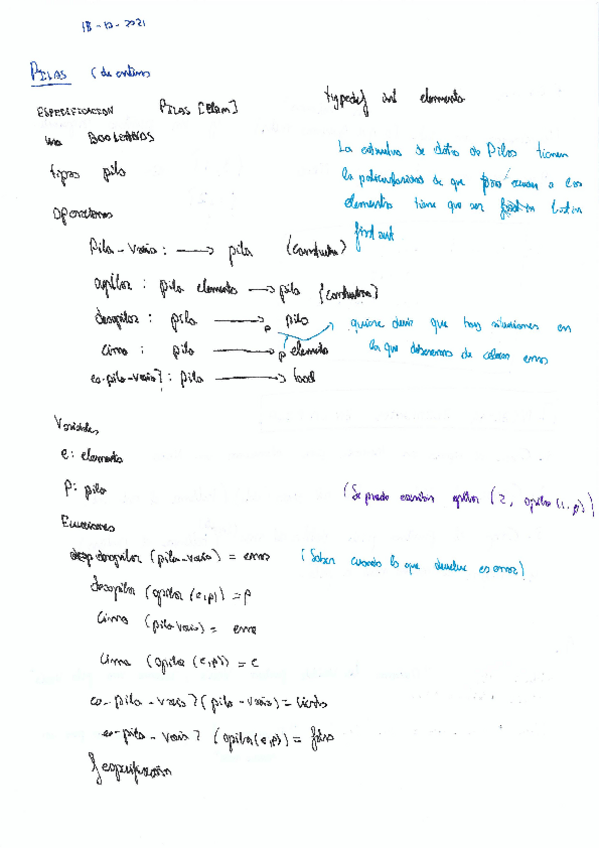 18-10-2021
PILAS (de enteros
ESPECIFICACION PILAS [Elem] typedef int elemento
usa BOOLEANOS
tipos pila
Operaciones
La estructura de datos de Pilas tienen
la particularidad de que para a los
elementos tiene que ser last in
first out
Pila-vacia: → pila (constructor)
apilar: pila elemento → pila (constructora)
desapilar: pila → p pila
cima: pila → p elemento
es-pila-vacia?: pila → bool
quiere decir que hay situaciones en
la que debemos de errores
Variables
e: elemento
p: pila
(Se puede escribir apilar (2, apilar (1, p))
Ecuaciones
desapilar (pila-vacia) = error (Saber cuando lo que devuelve es error)
desapilar (apilar (e,p)) = p
cima (pila vacia) = error
cima (apilar (e,p)) = e
es-pila-vacia? (pila-vacia) = cierto
es-pila-vacia? (apilar(e,p)) = falso
f especificación